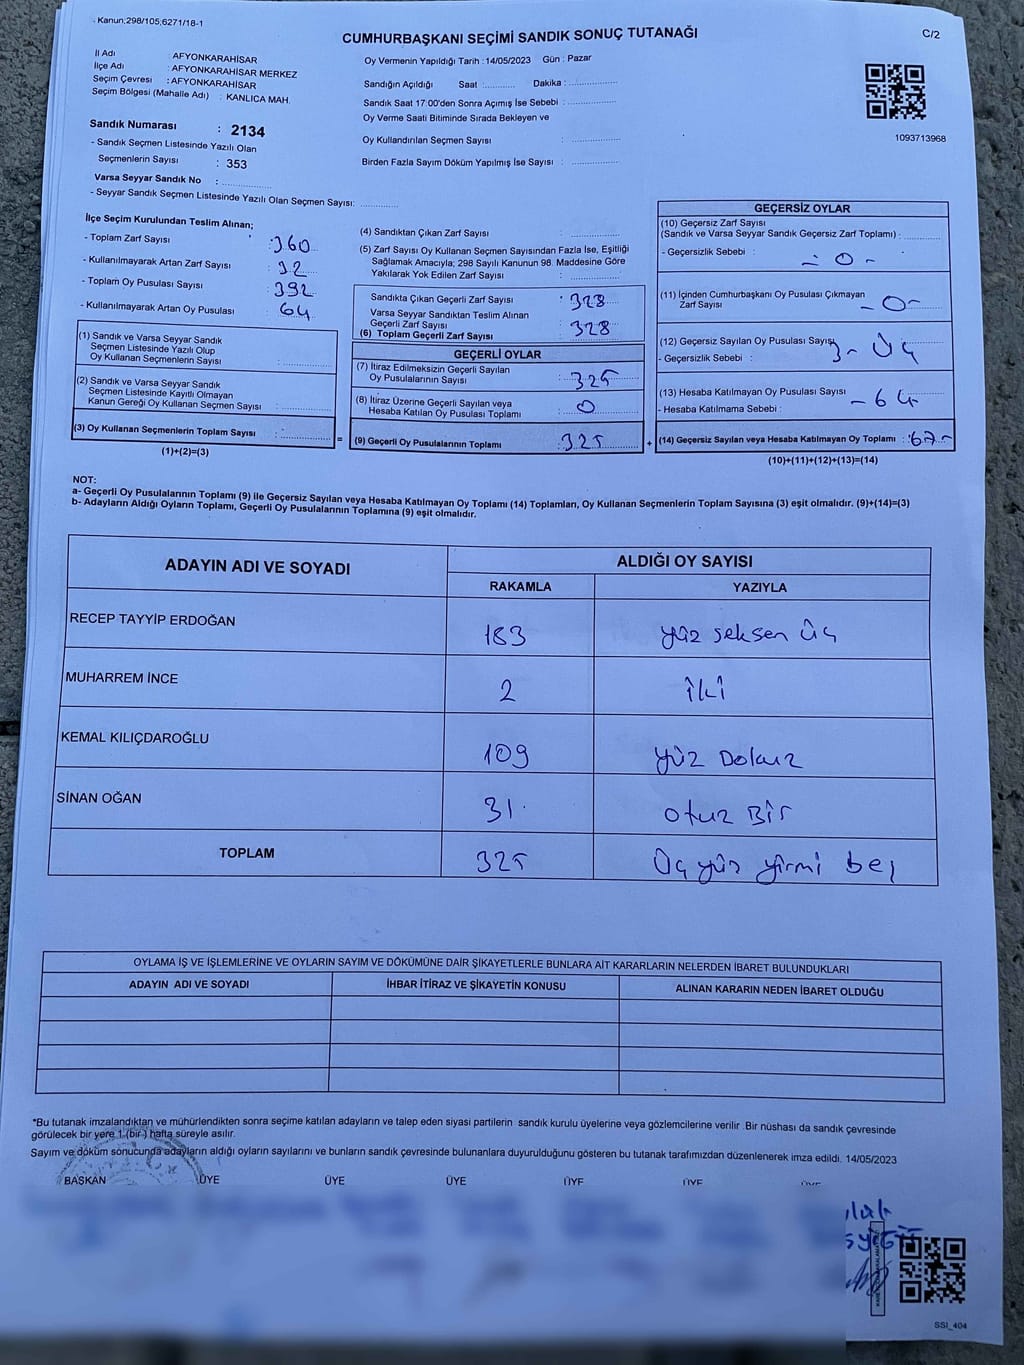 Kanun;298/105;6271/18-1
CUMHURBAŞKANI SEÇİMİ SANDIK SONUÇ TUTANAĞI
C/2
İl Adı : AFYONKARAHİSAR
İlçe Adı : AFYONKARAHİSAR MERKEZ
Seçim Çevresi : AFYONKARAHİSAR
Seçim Bölgesi (Mahalle Adı) : KANLICA MAH.
Sandık Numarası : 2134
- Sandık Seçmen Listesinde Yazılı Olan
Seçmenlerin Sayısı : 353
Varsa Seyyar Sandık No :
- Seyyar Sandık Seçmen Listesinde Yazılı Olan Seçmen Sayısı:
Oy Vermenin Yapıldığı Tarih :14/05/2023 Gün : Pazar
Sandığın Açıldığı Saat : Dakika :
Sandık Saat 17:00'den Sonra Açımış İse Sebebi :
Oy Verme Saati Bitiminde Sırada Bekleyen ve
Oy Kullandırılan Seçmen Sayısı :
Birden Fazla Sayım Döküm Yapılmış İse Sayısı :
1093713968
İlçe Seçim Kurulundan Teslim Alınan;
- Toplam Zarf Sayısı : 360
- Kullanılmayarak Artan Zarf Sayısı : 32
- Toplam Oy Pusulası Sayısı : 392
- Kullanılmayarak Artan Oy Pusulası : 64
(1) Sandık ve Varsa Seyyar Sandık
Seçmen Listesinde Yazılı Olup
Oy Kullanan Seçmenlerin Sayısı :
(2) Sandık ve Varsa Seyyar Sandık
Seçmen Listesinde Kayıtlı Olmayan
Kanun Gereği Oy Kullanan Seçmen Sayısı :
(3) Oy Kullanan Seçmenlerin Toplam Sayısı :
(1)+(2)=(3)
=
(4) Sandıktan Çıkan Zarf Sayısı :
(5) Zarf Sayısı Oy Kullanan Seçmen Sayısından Fazla İse, Eşitliği
Sağlamak Amacıyla; 298 Sayılı Kanunun 98. Maddesine Göre
Yakılarak Yok Edilen Zarf Sayısı :
Sandıkta Çıkan Geçerli Zarf Sayısı : 328
Varsa Seyyar Sandıktan Teslim Alınan
Geçerli Zarf Sayısı
(6) Toplam Geçerli Zarf Sayısı : 328
GEÇERLİ OYLAR
(7) İtiraz Edilmeksizin Geçerli Sayılan
Oy Pusulalarının Sayısı : 325
(8) İtiraz Üzerine Geçerli Sayılan veya
Hesaba Katılan Oy Pusulası Toplamı : 0
(9) Geçerli Oy Pusulalarının Toplamı : 325
+
GEÇERSİZ OYLAR
(10) Geçersiz Zarf Sayısı
(Sandık ve Varsa Seyyar Sandık Geçersiz Zarf Toplamı) :
- Geçersizlik Sebebi : - 0 -
(11) İçinden Cumhurbaşkanı Oy Pusulası Çıkmayan
Zarf Sayısı - 0 -
(12) Geçersiz Sayılan Oy Pusulası Sayısı 3 - Üç
- Geçersizlik Sebebi :
(13) Hesaba Katılmayan Oy Pusulası Sayısı - 64
- Hesaba Katılmama Sebebi :
(14) Geçersiz Sayılan veya Hesaba Katılmayan Oy Toplamı : 67 -
(10)+(11)+(12)+(13)=(14)
NOT:
a- Geçerli Oy Pusulalarının Toplamı (9) ile Geçersiz Sayılan veya Hesaba Katılmayan Oy Toplamı (14) Toplamları, Oy Kullanan Seçmenlerin Toplam Sayısına (3) eşit olmalıdır. (9)+(14)=(3)
b- Adayların Aldığı Oyların Toplamı, Geçerli Oy Pusulalarının Toplamına (9) eşit olmalıdır.
ADAYIN ADI VE SOYADI ALDIĞI OY SAYISI
RAKAMLA YAZIYLA
RECEP TAYYİP ERDOĞAN 183 yüz seksen üç
MUHARREM İNCE 2 iki
KEMAL KILIÇDAROĞLU 109 yüz Dokuz
SİNAN OĞAN 31 otuz Bir
TOPLAM 325 Üç yüz yirmi beş
OYLAMA İŞ VE İŞLEMLERİNE VE OYLARIN SAYIM VE DÖKÜMÜNE DAİR ŞİKAYETLERLE BUNLARA AİT KARARLARIN NELERDEN İBARET BULUNDUKLARI
ADAYIN ADI VE SOYADI İHBAR İTİRAZ VE ŞİKAYETİN KONUSU ALINAN KARARIN NEDEN İBARET OLDUĞU
*Bu tutanak imzalandıktan ve mühürlendikten sonra seçime katılan adayların ve talep eden siyasi partilerin sandık kurulu üyelerine veya gözlemcilerine verilir .Bir nüshası da sandık çevresinde
görülecek bir yere 1 (bir) hafta süreyle asılır.
Sayım ve döküm sonucunda adayların aldığı oyların sayılarını ve bunların sandık çevresinde bulunanlara duyurulduğunu gösteren bu tutanak tarafımızdan düzenlenerek imza edildi. 14/05/2023
BAŞKAN ÜYE ÜYE ÜYE ÜYE ÜYE ÜYE
SSI_404